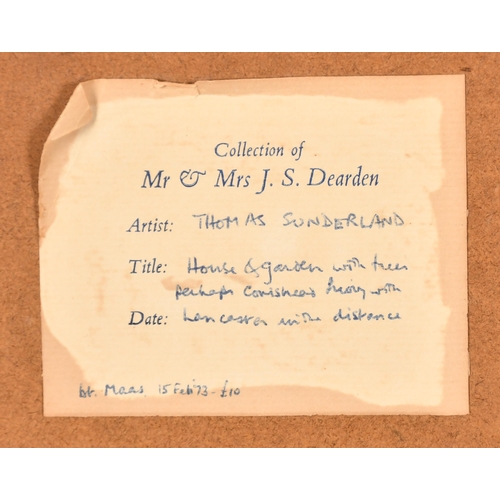 Collection of
Mr & Mrs J. S. Dearden
Artist: THOMAS SUNDERLAND
Title: House & garden with trees
perhaps Conishead Priory with
Date: Lancaster in the distance
bt. Maas 15 Feb '73 - £10